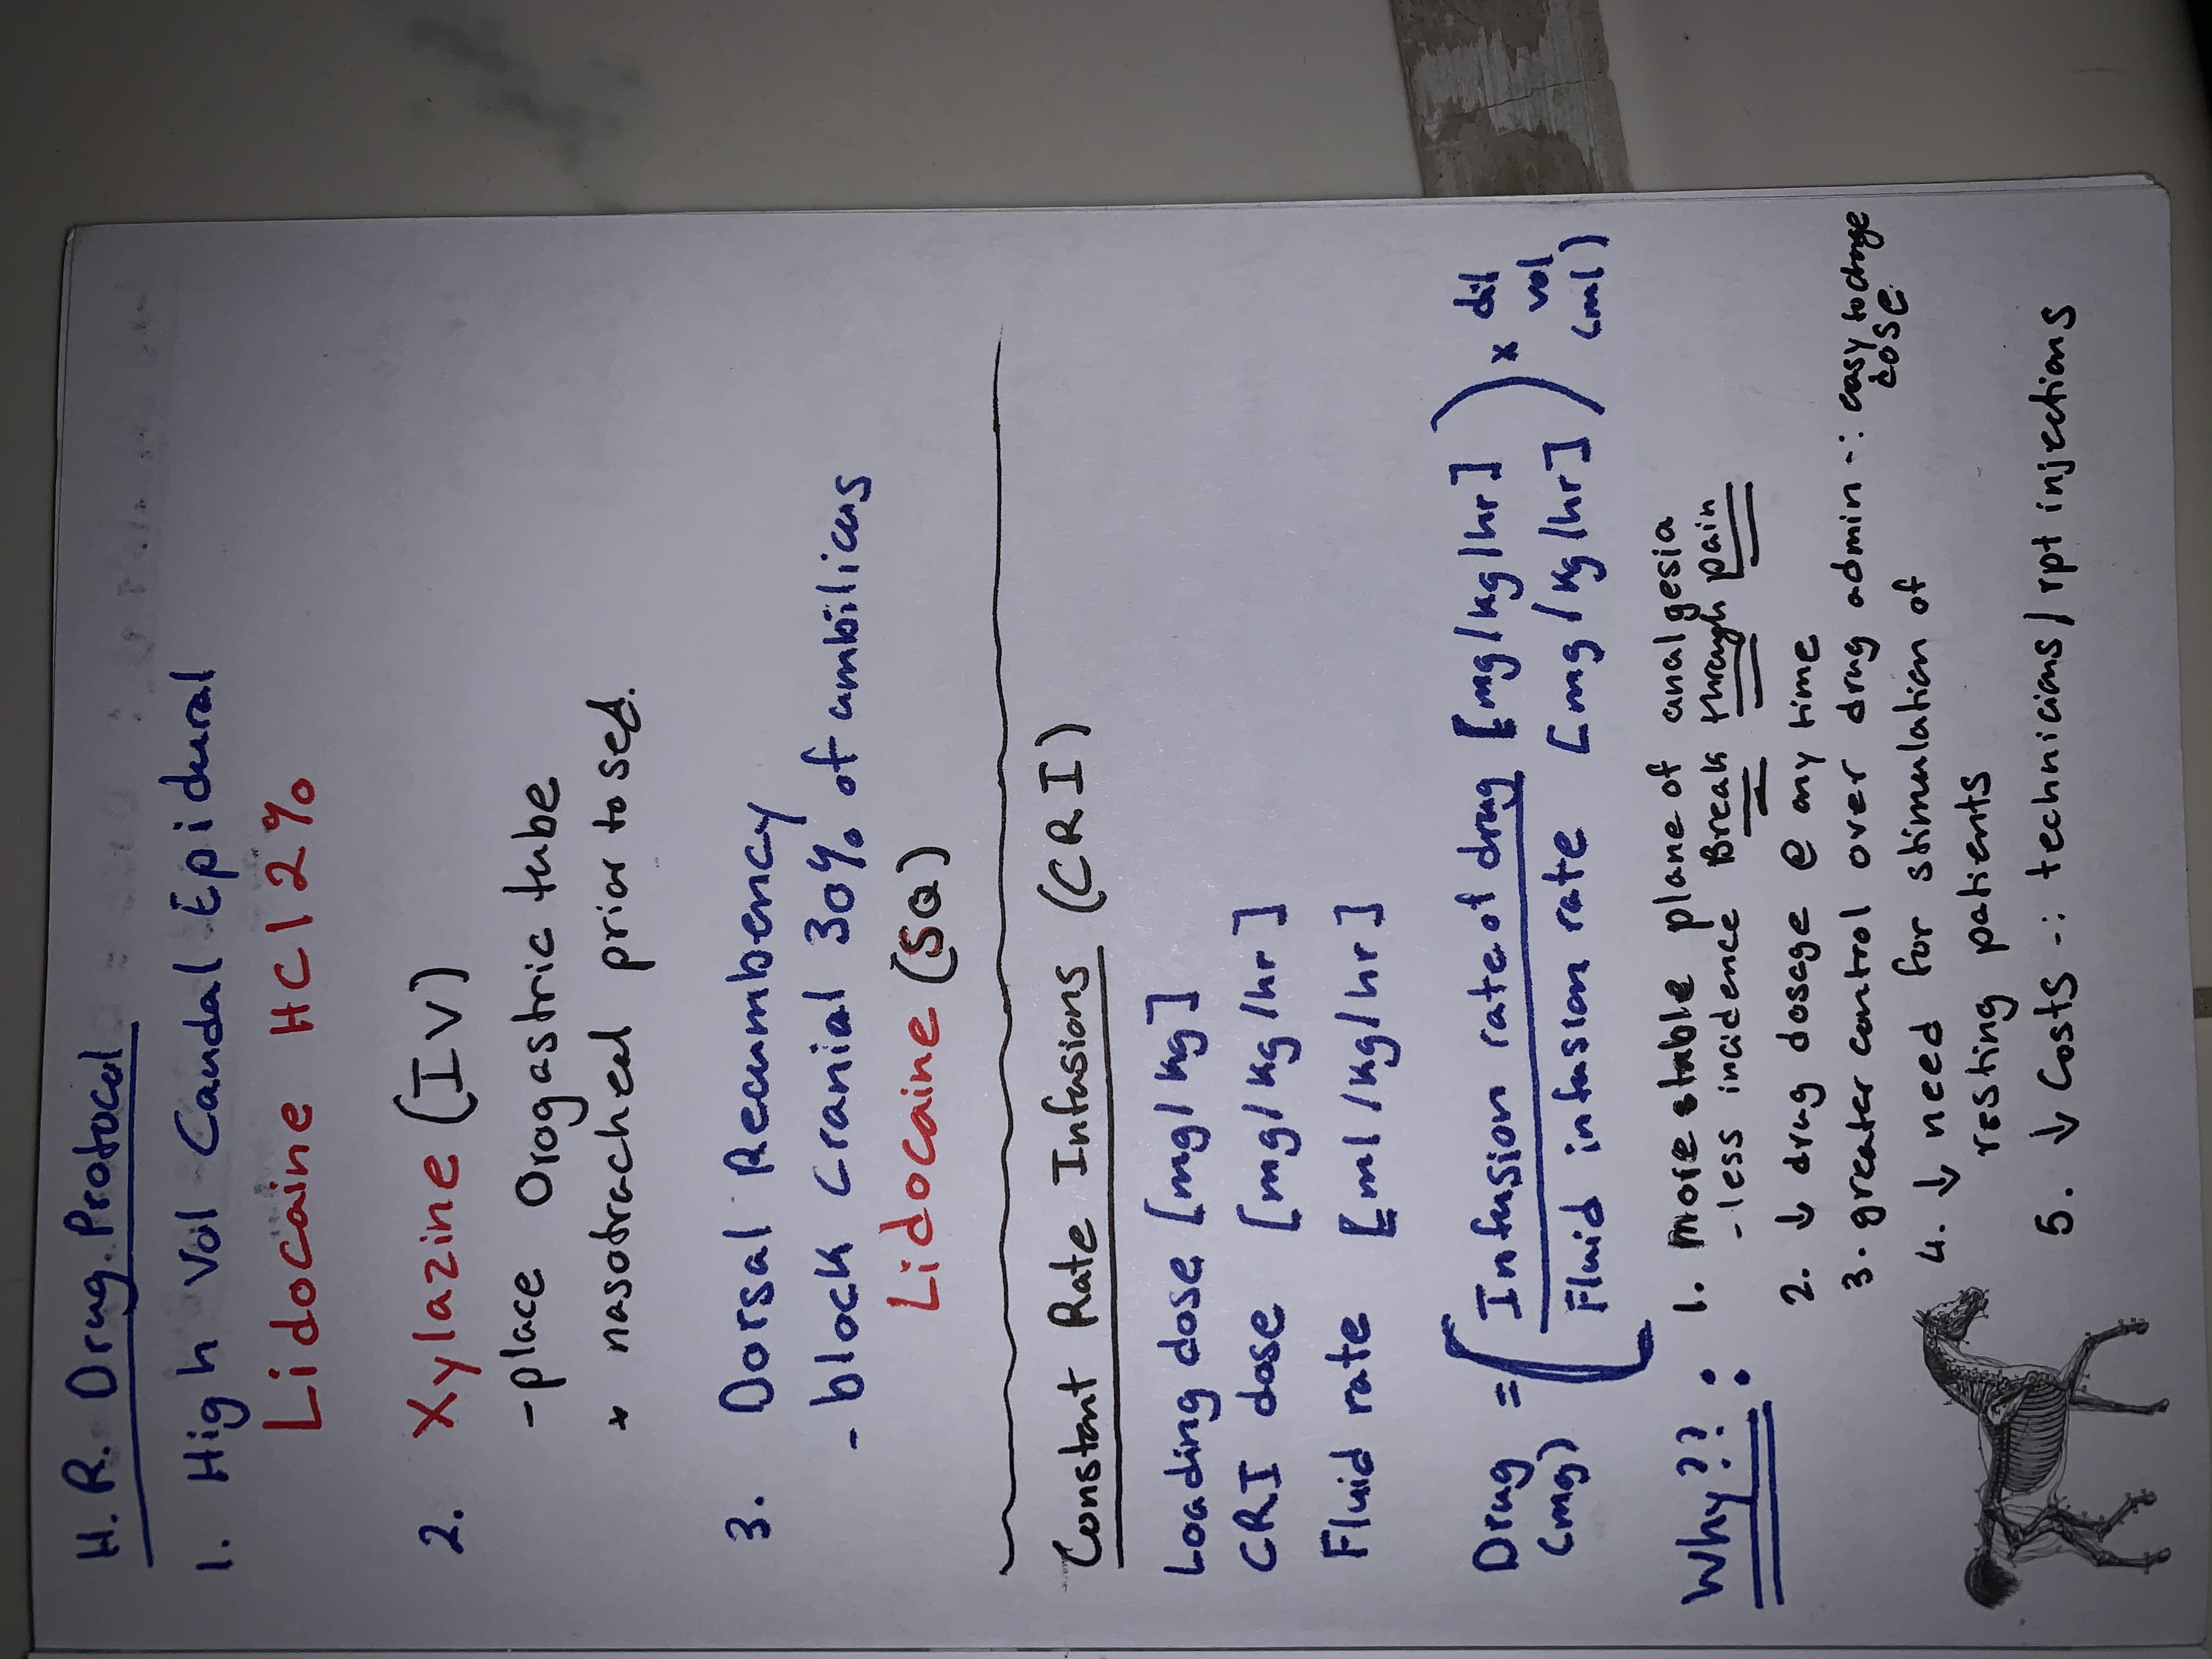 H.R. Drug Protocol
1. High Vol Caudal Epidural
Lidocaine HCl 2%
2. Xylazine (IV)
- place Orogastric tube
+ nasotracheal prior to sed.
3. Dorsal Recumbency
- block cranial 30% of umbilicus
Lidocaine (SQ)
Constant Rate Infusions (CRI)
Loading dose [mg/kg]
CRI dose [mg/kg/hr]
Fluid rate [ml/kg/hr]
Drug (mg) = (Infusion rate of drug [mg/kg/hr]
Fluid infusion rate [mg/kg/hr]) x dil vol (ml)
Why??: 1. more stable plane of analgesia
- less incidence Break through pain
2. ↓ drug dosage @ any time
3. greater control over drug admin ∴ easy to change dose
4. ↓ need for stimulation of
resting patients
5. ↓ costs ∴ technicians/rpt injections